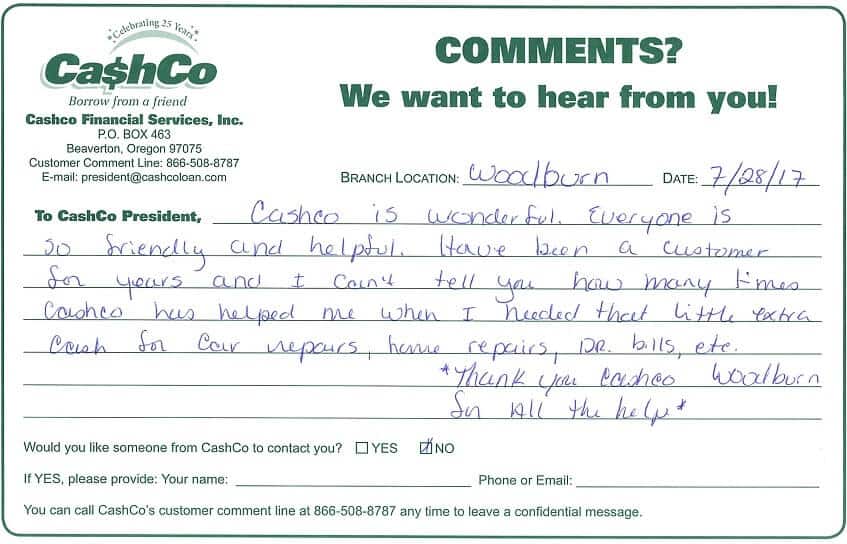 Celebrating 25 Years
Ca$hCo
Borrow from a friend
Cashco Financial Services, Inc.
P.O. BOX 463
Beaverton, Oregon 97075
Customer Comment Line: 866-508-8787
E-mail: president@cashcoloan.com
COMMENTS?
We want to hear from you!
BRANCH LOCATION: Woodburn DATE: 7/28/17
To CashCo President, Cashco is wonderful. Everyone is
so friendly and helpful. Have been a customer
for years and I can't tell you how many times
Cashco has helped me when I needed that little extra
Cash for Car repairs, home repairs, DR. bills, etc.
*Thank you Cashco Woodburn
for All the help*
Would you like someone from CashCo to contact you? YES NO
If YES, please provide: Your name: Phone or Email:
You can call CashCo's customer comment line at 866-508-8787 any time to leave a confidential message.